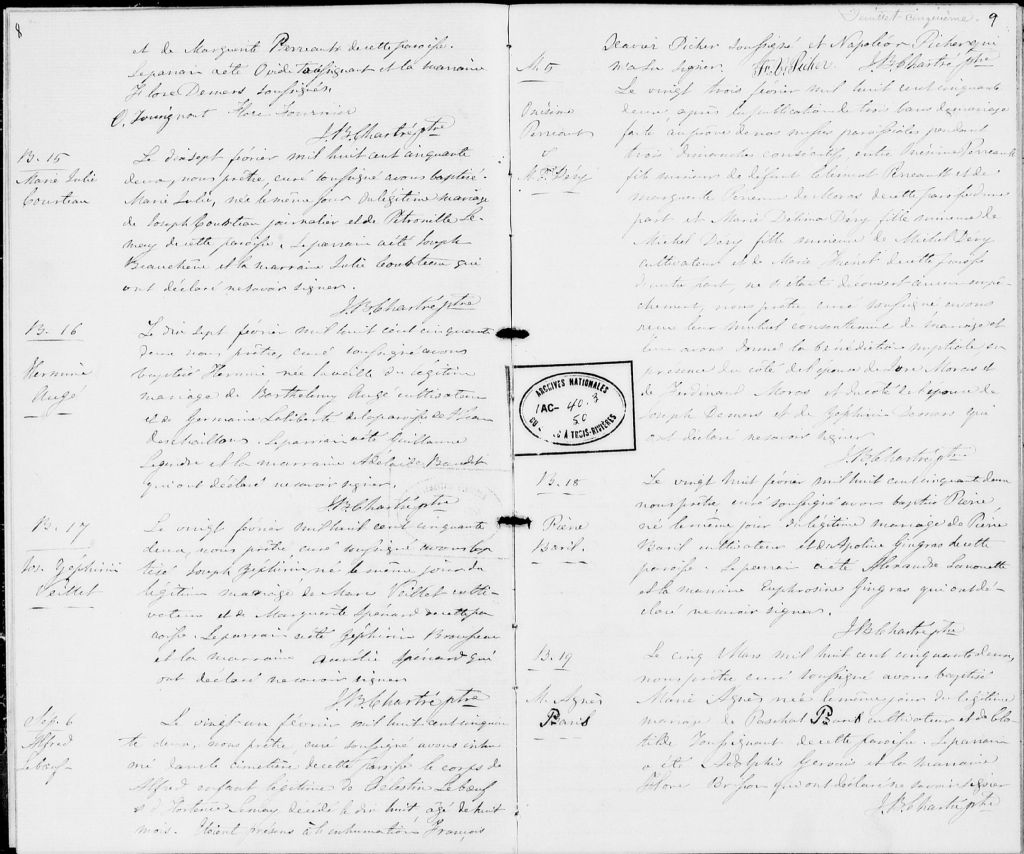 8
et de Marguerite Perreault de cette paroisse.
Le parrain a été Ovide Tousignant et la marraine
Flore Demers soussignés
O. Tousignant Flore Fournier
J.B. Chartré ptre
B. 15
Marie Julie
Courteau
Le dix sept février mil huit cent cinquante
deux, nous prêtre, curé soussigné avons baptisé
Marie Julie, née le même jour du légitime mariage
de Joseph Courteau journalier et de Petronille Le-
may de cette paroisse. Le parrain a été Joseph
Beauchêne et la marraine Julie Courteau qui
ont déclaré ne savoir signer.
J.B. Chartré ptre
B. 16
Herminie
Augé
Le dix sept février mil huit cent cinquante
deux nous prêtre, curé soussigné avons
baptisé Herminie née la veille du légitime
mariage de Barthelemy Augé cultivateur
et de Germaine Laliberté de la paroisse de St Jean
deschaillons. Le parrain a été Guillaume
Legendre et la marraine Adélaide Baudet
qui ont déclaré ne savoir signer.
J.B. Chartré ptre
B. 17
Jos. Zéphirin
Veillet
Le vingt février mil huit cent cinquante
deux, nous prêtre, curé soussigné avons bap-
tisé Joseph Zéphirin né le même jour du
légitime mariage de Marc Veillet culti-
vateur et de Marguerite Spénard de cette pa-
roisse. Le parrain a été Zéphirin Brousseau
et la marraine Aurélie Spénard qui
ont déclaré ne savoir signer
J.B. Chartré ptre
Sép. 6
Alfred
Leboeuf
Le vingt un février mil huit cent cinquan-
te deux, nous prêtre, curé soussigné avons inhu-
mé dans le cimetière de cette paroisse le corps de
Alfred enfant légitime de Célestin Leboeuf
et d'Hortense Lemay, décédé le dix huit âgé de huit
mois. Etaient présens à l'inhumation François
Feuillet cinquième. 9
Xavier Picher soussigné et Napoléon Picher qui
n'a su signer. F.X. Picher J.B. Chartré ptre
M. 5
Onésime
Perreault
&
M. D. Déry
Le vingt trois février mil huit cent cinquante
deux après la publication de trois bans de mariage
faite au prône de nos messes paroissiales pendant
trois dimanches consécutifs, entre Onésime Perreault
fils mineur de défunt Clément Perreault et de
Marguerite de cette paroisse d'une
part et Marie Delima Déry fille mineure de
Michel Déry fille mineure de Michel Déry
cultivateur et de Marie de cette paroisse
d'autre part, ne s'étant découvert aucun empê-
chement, nous prêtre curé soussigné avons
reçu leur mutuel consentement de mariage et
leur avons donné la bénédiction nuptiale en
présence du côté de l'époux de Moras et
de Ferdinand Moras et du côté de l'épouse de
Joseph Demers et de Zéphirin Demers qui
ont déclaré ne savoir signer
J.B. Chartré ptre
ARCHIVES NATIONALES
IAC- 40.3
50
À TROIS-RIVIÈRES
B. 18
Pierre
Baril.
Le vingt huit février mil huit cent cinquante deux
nous prêtre, curé soussigné avons baptisé Pierre
né le même jour du légitime mariage de Pierre
Baril cultivateur et de Apoline Gingras de cette
paroisse. Le parrain a été Alexandre Lanouette
et la marraine Euphrosine Gingras qui ont dé-
claré ne savoir signer.
J.B. Chartré ptre
B. 19
M. Agnès
Paris
Le cinq Mars mil huit cent cinquante deux,
nous prêtre curé soussigné avons baptisé
Marie Agnès née le même jour du légitime
mariage de Paschal Paris cultivateur et de Clo-
tilde Tousignant de cette paroisse. Le parrain
a été Adolphis Gervais et la marraine
Flore Brisson qui ont déclaré ne savoir signer
J.B. Chartré ptre